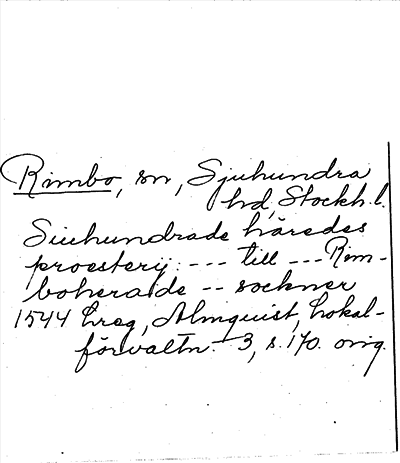 Rimbo, sn, Sjuhundra
hd, Stockh. l.
Siuhundrade häredes
proesterij: --- till --- Rim-
boherade -- sockner
1544 hreg, Almquist, Lokal-
förvaltn. 3, s. 170. orig.